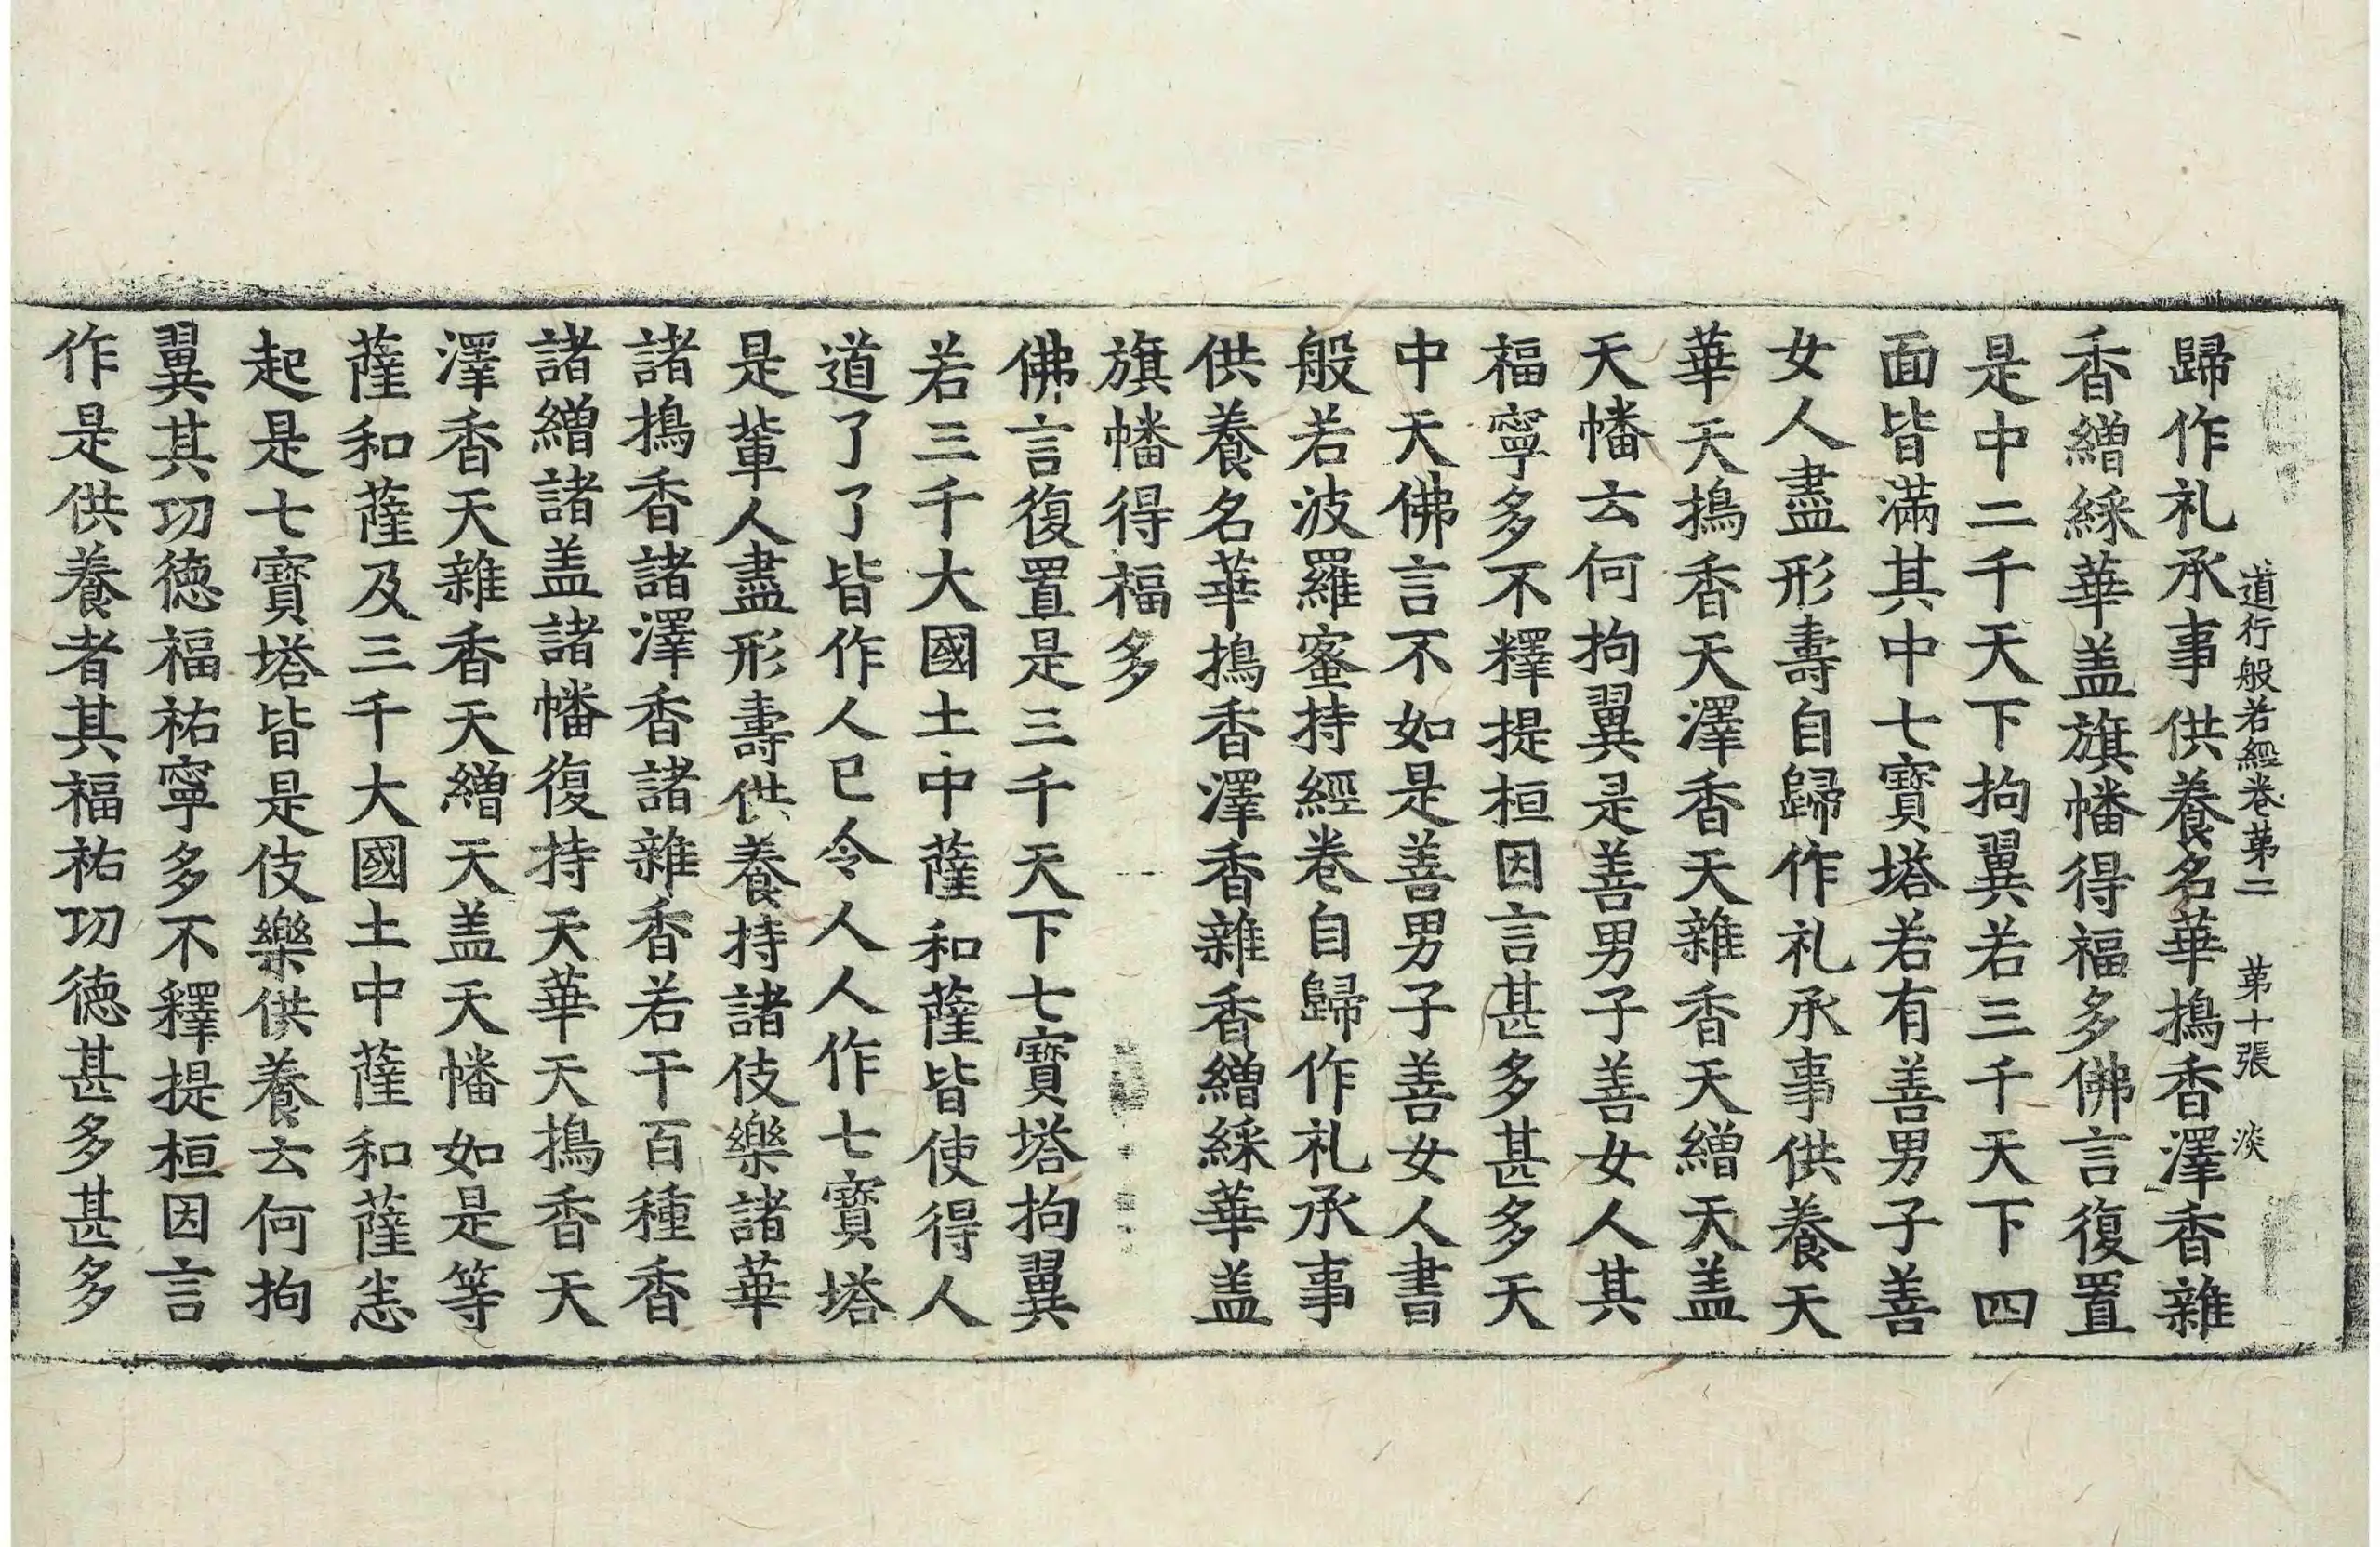 道行般若經卷苐二　苐十張　淡
歸作礼承事供養名華搗香澤香雜
香繒綵華盖旗幡得福多佛言復置
是中二千天下拘翼若三千天下四
面皆滿其中七寶塔若有善男子善
女人盡形壽自歸作礼承事供養天
華天搗香天澤香天雜香天繒天盖
天幡云何拘翼是善男子善女人其
福寧多不釋提桓因言甚多甚多天
中天佛言不如是善男子善女人書
般若波羅蜜持經卷自歸作礼承事
供養名華搗香澤香雜香繒綵華盖
旗幡得福多
佛言復置是三千天下七寶塔拘翼
若三千大國土中薩和薩皆使得人
道了了皆作人已令人人作七寶塔
是軰人盡形壽供養持諸伎樂諸華
諸搗香諸澤香諸雜香若干百種香
諸繒諸盖諸幡復持天華天搗香天
澤香天雜香天繒天盖天幡如是等
薩和薩及三千大國土中薩和薩悉
起是七寶塔皆是伎樂供養云何拘
翼其功徳福祐寧多不釋提桓因言
作是供養者其福祐功徳甚多甚多